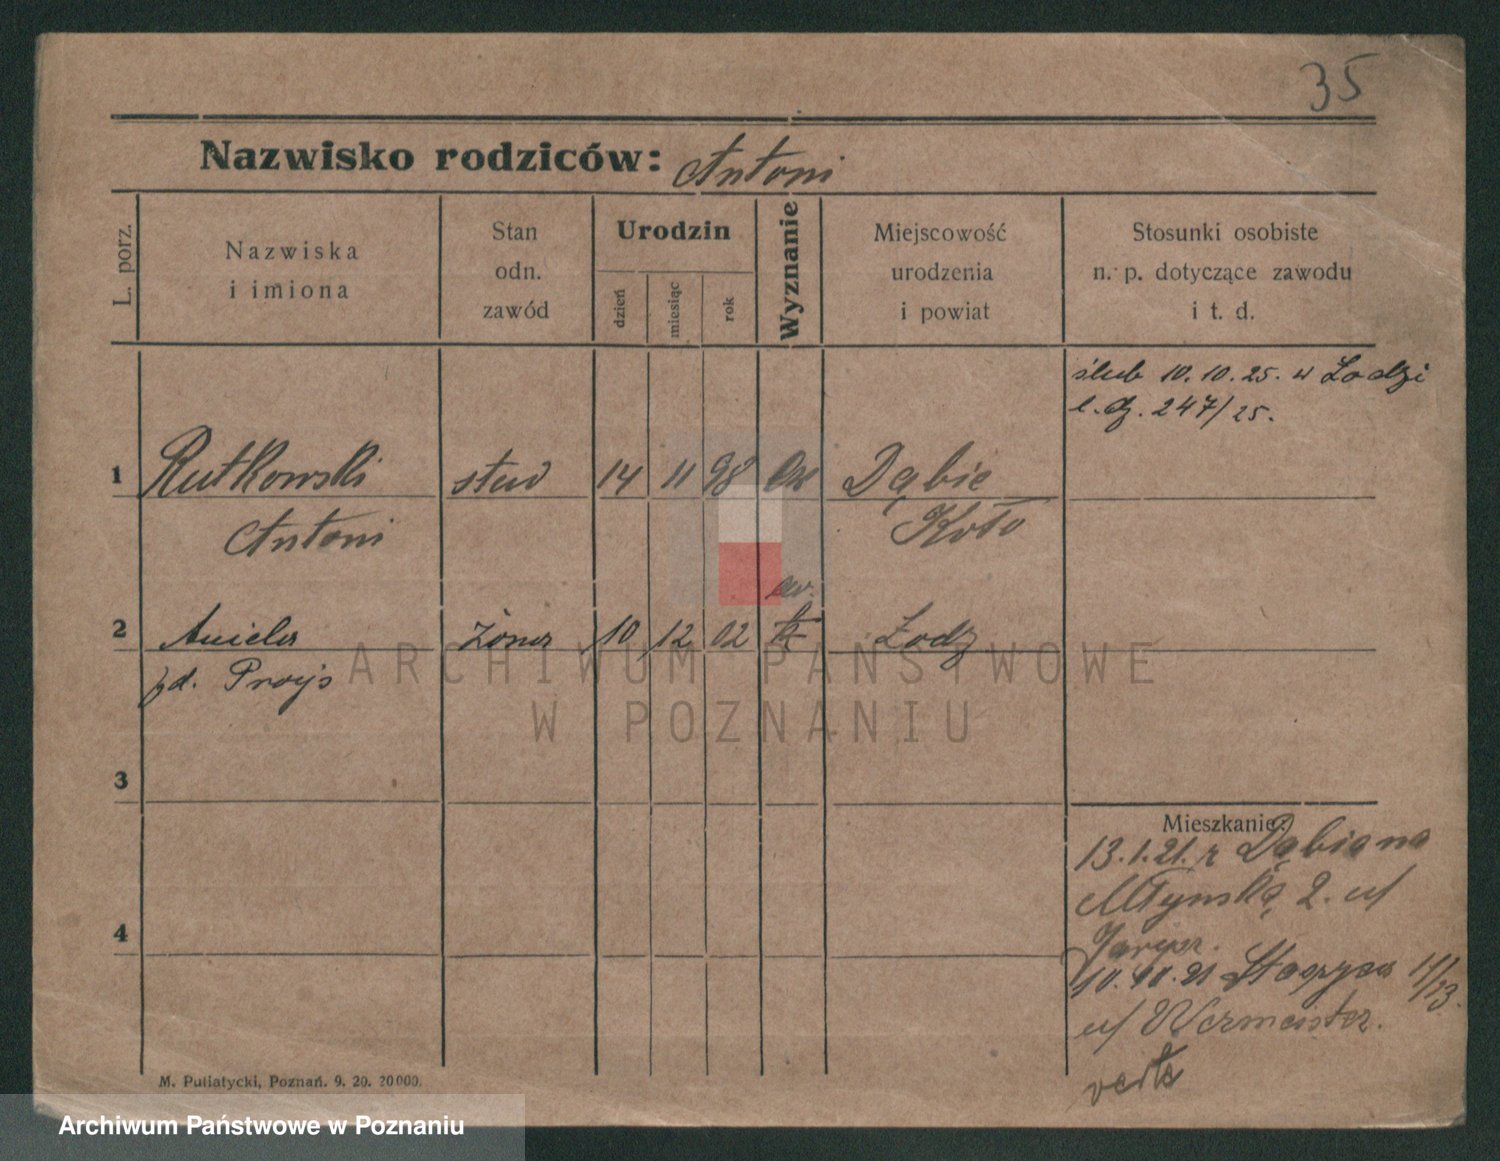 35
Nazwisko rodziców: Antoni
L. porz.
Nazwiska
i imiona
Stan
odn.
zawód
Urodzin
dzień
miesiąc
rok
Wyznanie
Miejscowość
urodzenia
i powiat
Stosunki osobiste
n. p. dotyczące zawodu
i t. d.
ślub 10.10.25. w Łodzi
l. dz. 247/25.
1 Rutkowski stud 14 11 98 Dąbie
Antoni Koło
ew.
2 Aniela żona 10 12 02 Łodz
ARCHIWUM PAŃSTWOWE
W POZNANIU
3
Mieszkanie:
13.1.21. z Dąbia na
Młyńską 2. u/
4
10.10.21 11/13.
u/ Wermeister.
verte
M. Putiatycki, Poznań. 9. 20. 20000.
Archiwum Państwowe w Poznaniu